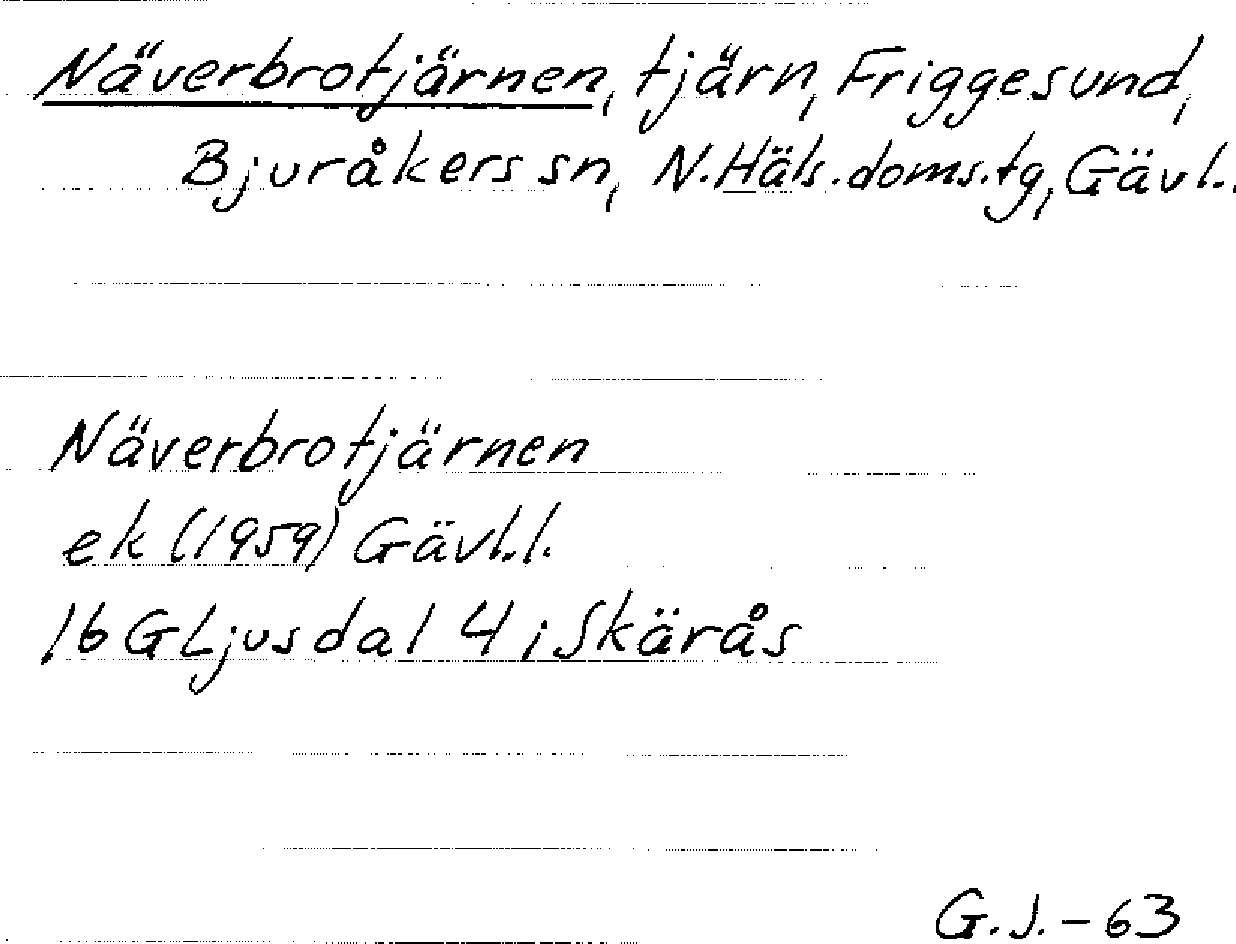 Näverbrotjärnen, tjärn, Friggesund,
Bjuråkers sn, N.Häls.doms.tg, Gävl..
Näverbrotjärnen
ek (1959) Gävl.l.
16 G Ljusdal 4 i Skärås
G.J.-63